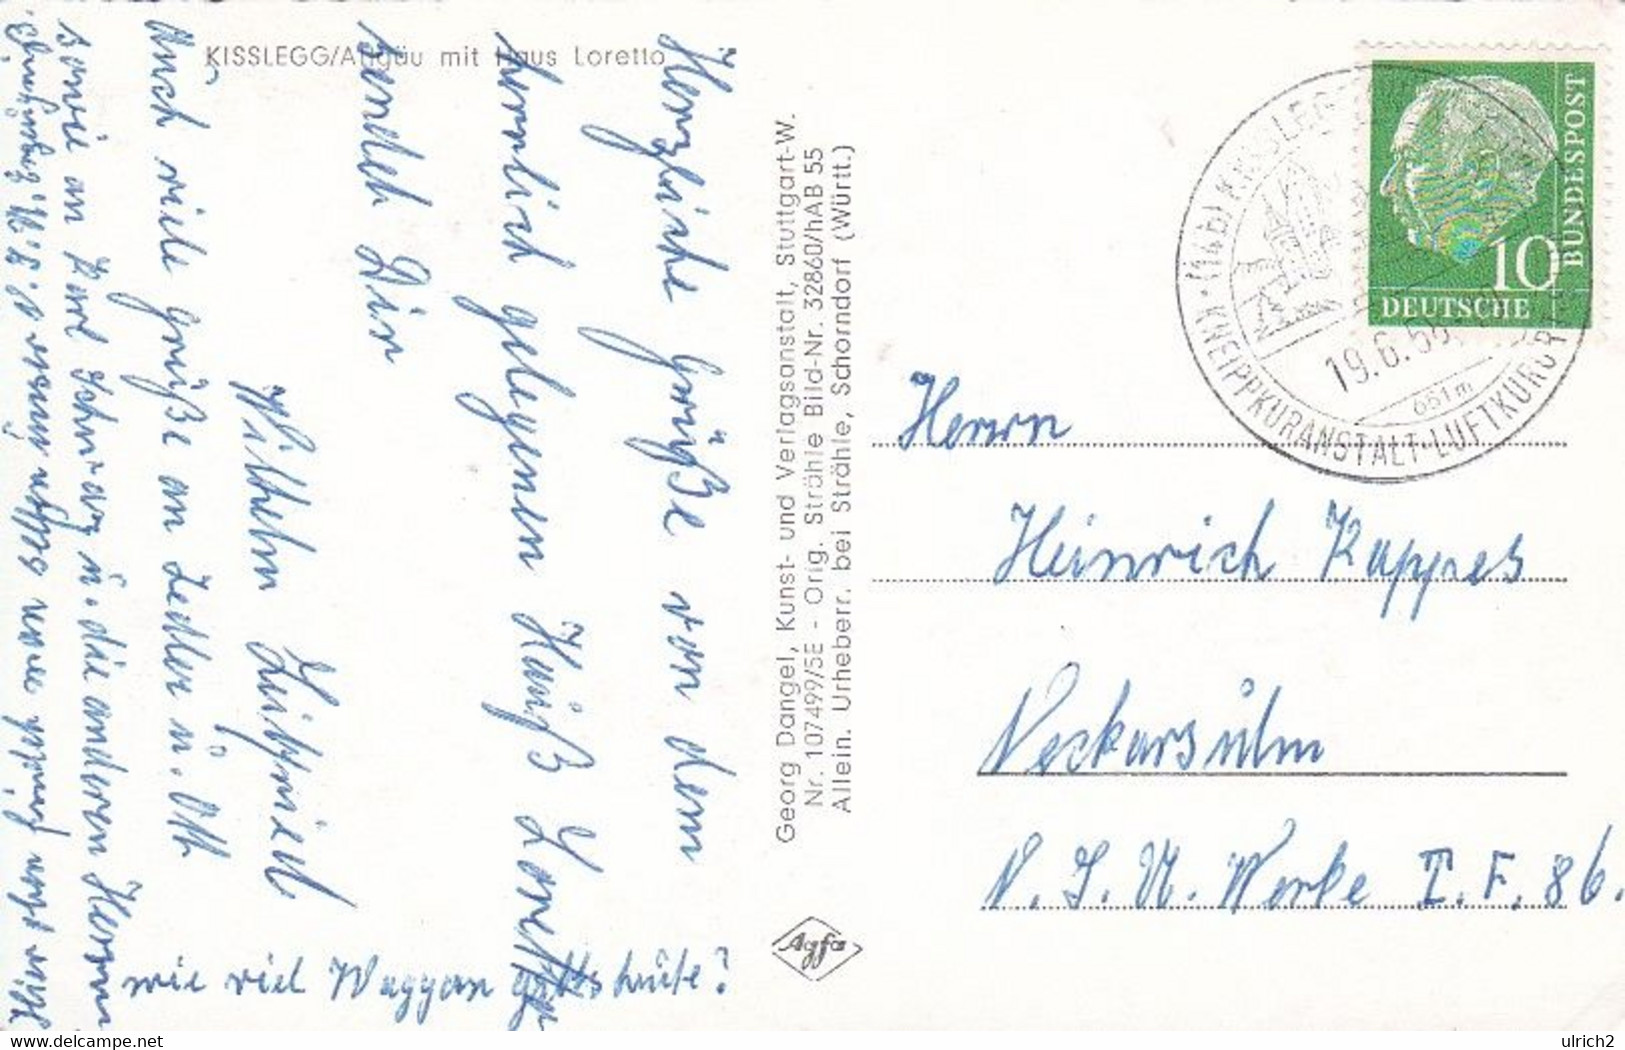 KISSLEGG/Allgäu mit Haus Loretto
Herzliche Grüße von dem
herrlich gelegenen Hauß Loretto
sendet Dir
Wilhelm
Auch viele Grüße an Zeller u. Ott
sowie an Karl Schwarz u. die anderen Herrn
Hier oben
wie viel Waggon gibts heute?
Georg Dangel, Kunst- und Verlagsanstalt, Stuttgart-W.
Nr. 107499/SE - Orig. Strähle Bild-Nr. 32860/hAB 55
Allein. Urheberr. bei Strähle, Schorndorf (Württ.)
Agfa
(14b) KISSLEGG
KNEIPPKURANSTALT·LUFTKURORT
19.6.56
661m
10
DEUTSCHE
BUNDESPOST
Herrn
Heinrich Kappes
Neckarsulm
N.S.U. Werke T.F. 86.
www.delcampe.net
ulrich2